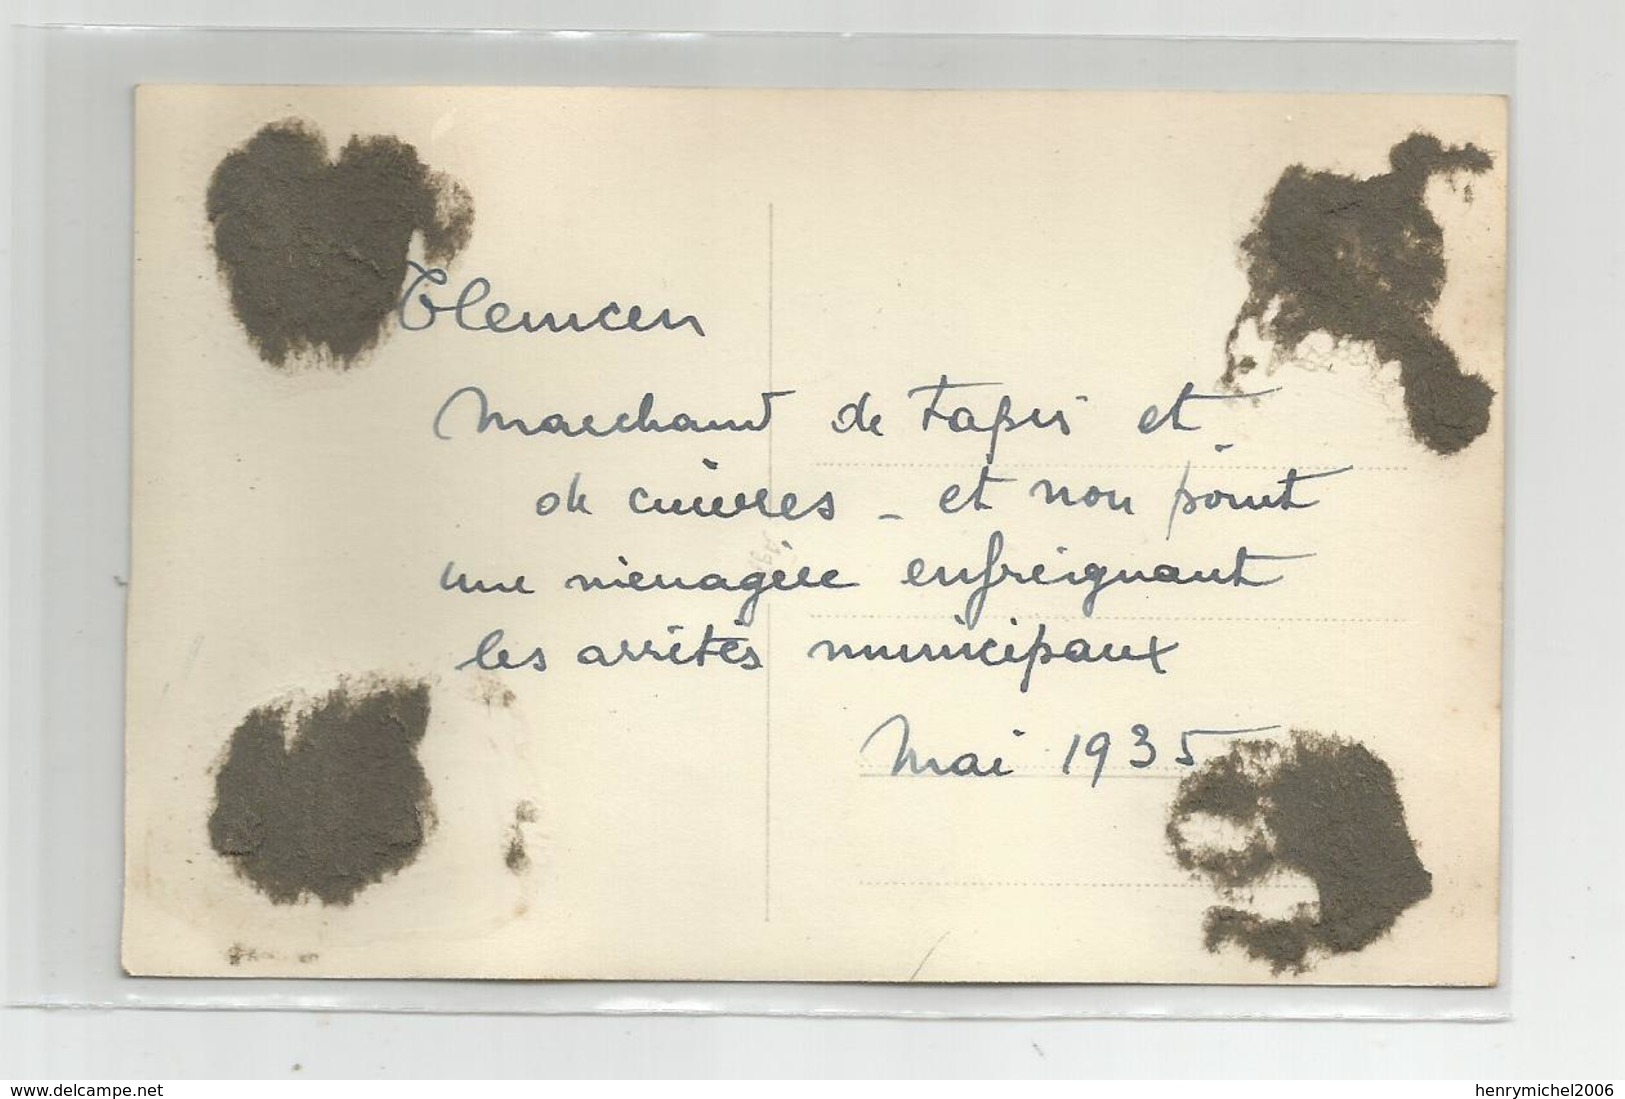 Tlemcen
Marchand de tapis et -
de cuivres - et non point
une ménagère enfreignant
les arrêtés municipaux
Mai 1935
www.delcampe.net
henrymichel2006